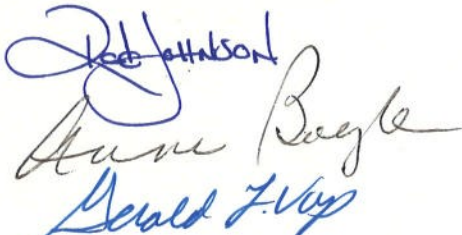 Rod Johnson
Anne Bogle
Gerald J. Vop